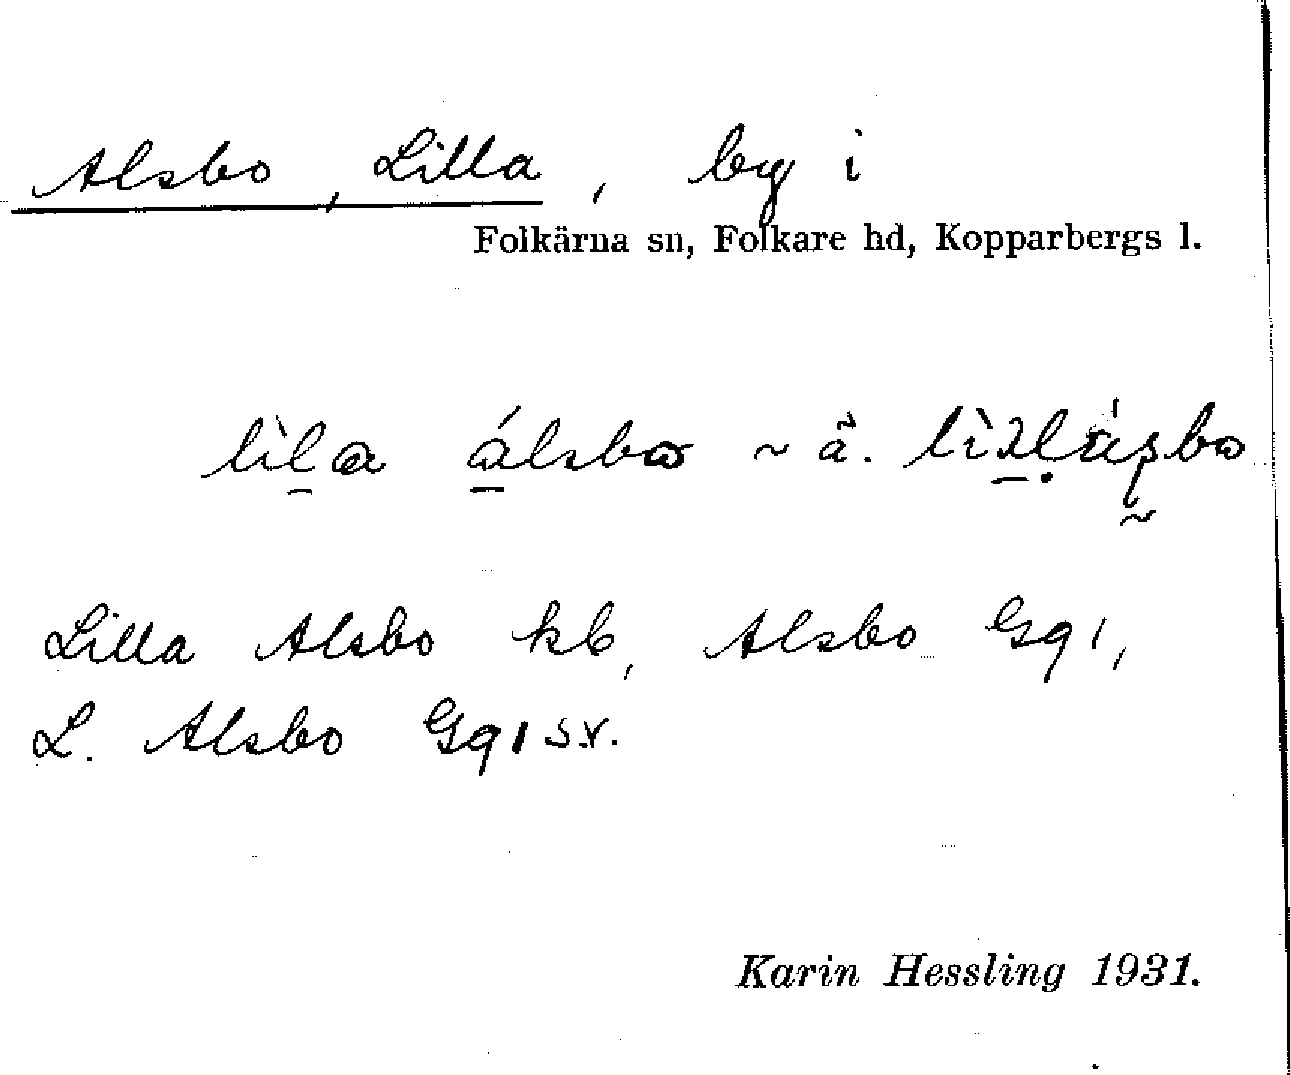 Alsbo, Lilla, by i
Folkärna sn, Folkare hd, Kopparbergs l.
lìla álsbo ~ ä.
Lilla Alsbo kb, Alsbo Gq 1,
L. Alsbo Gq 1 s.v.
Karin Hessling 1931.